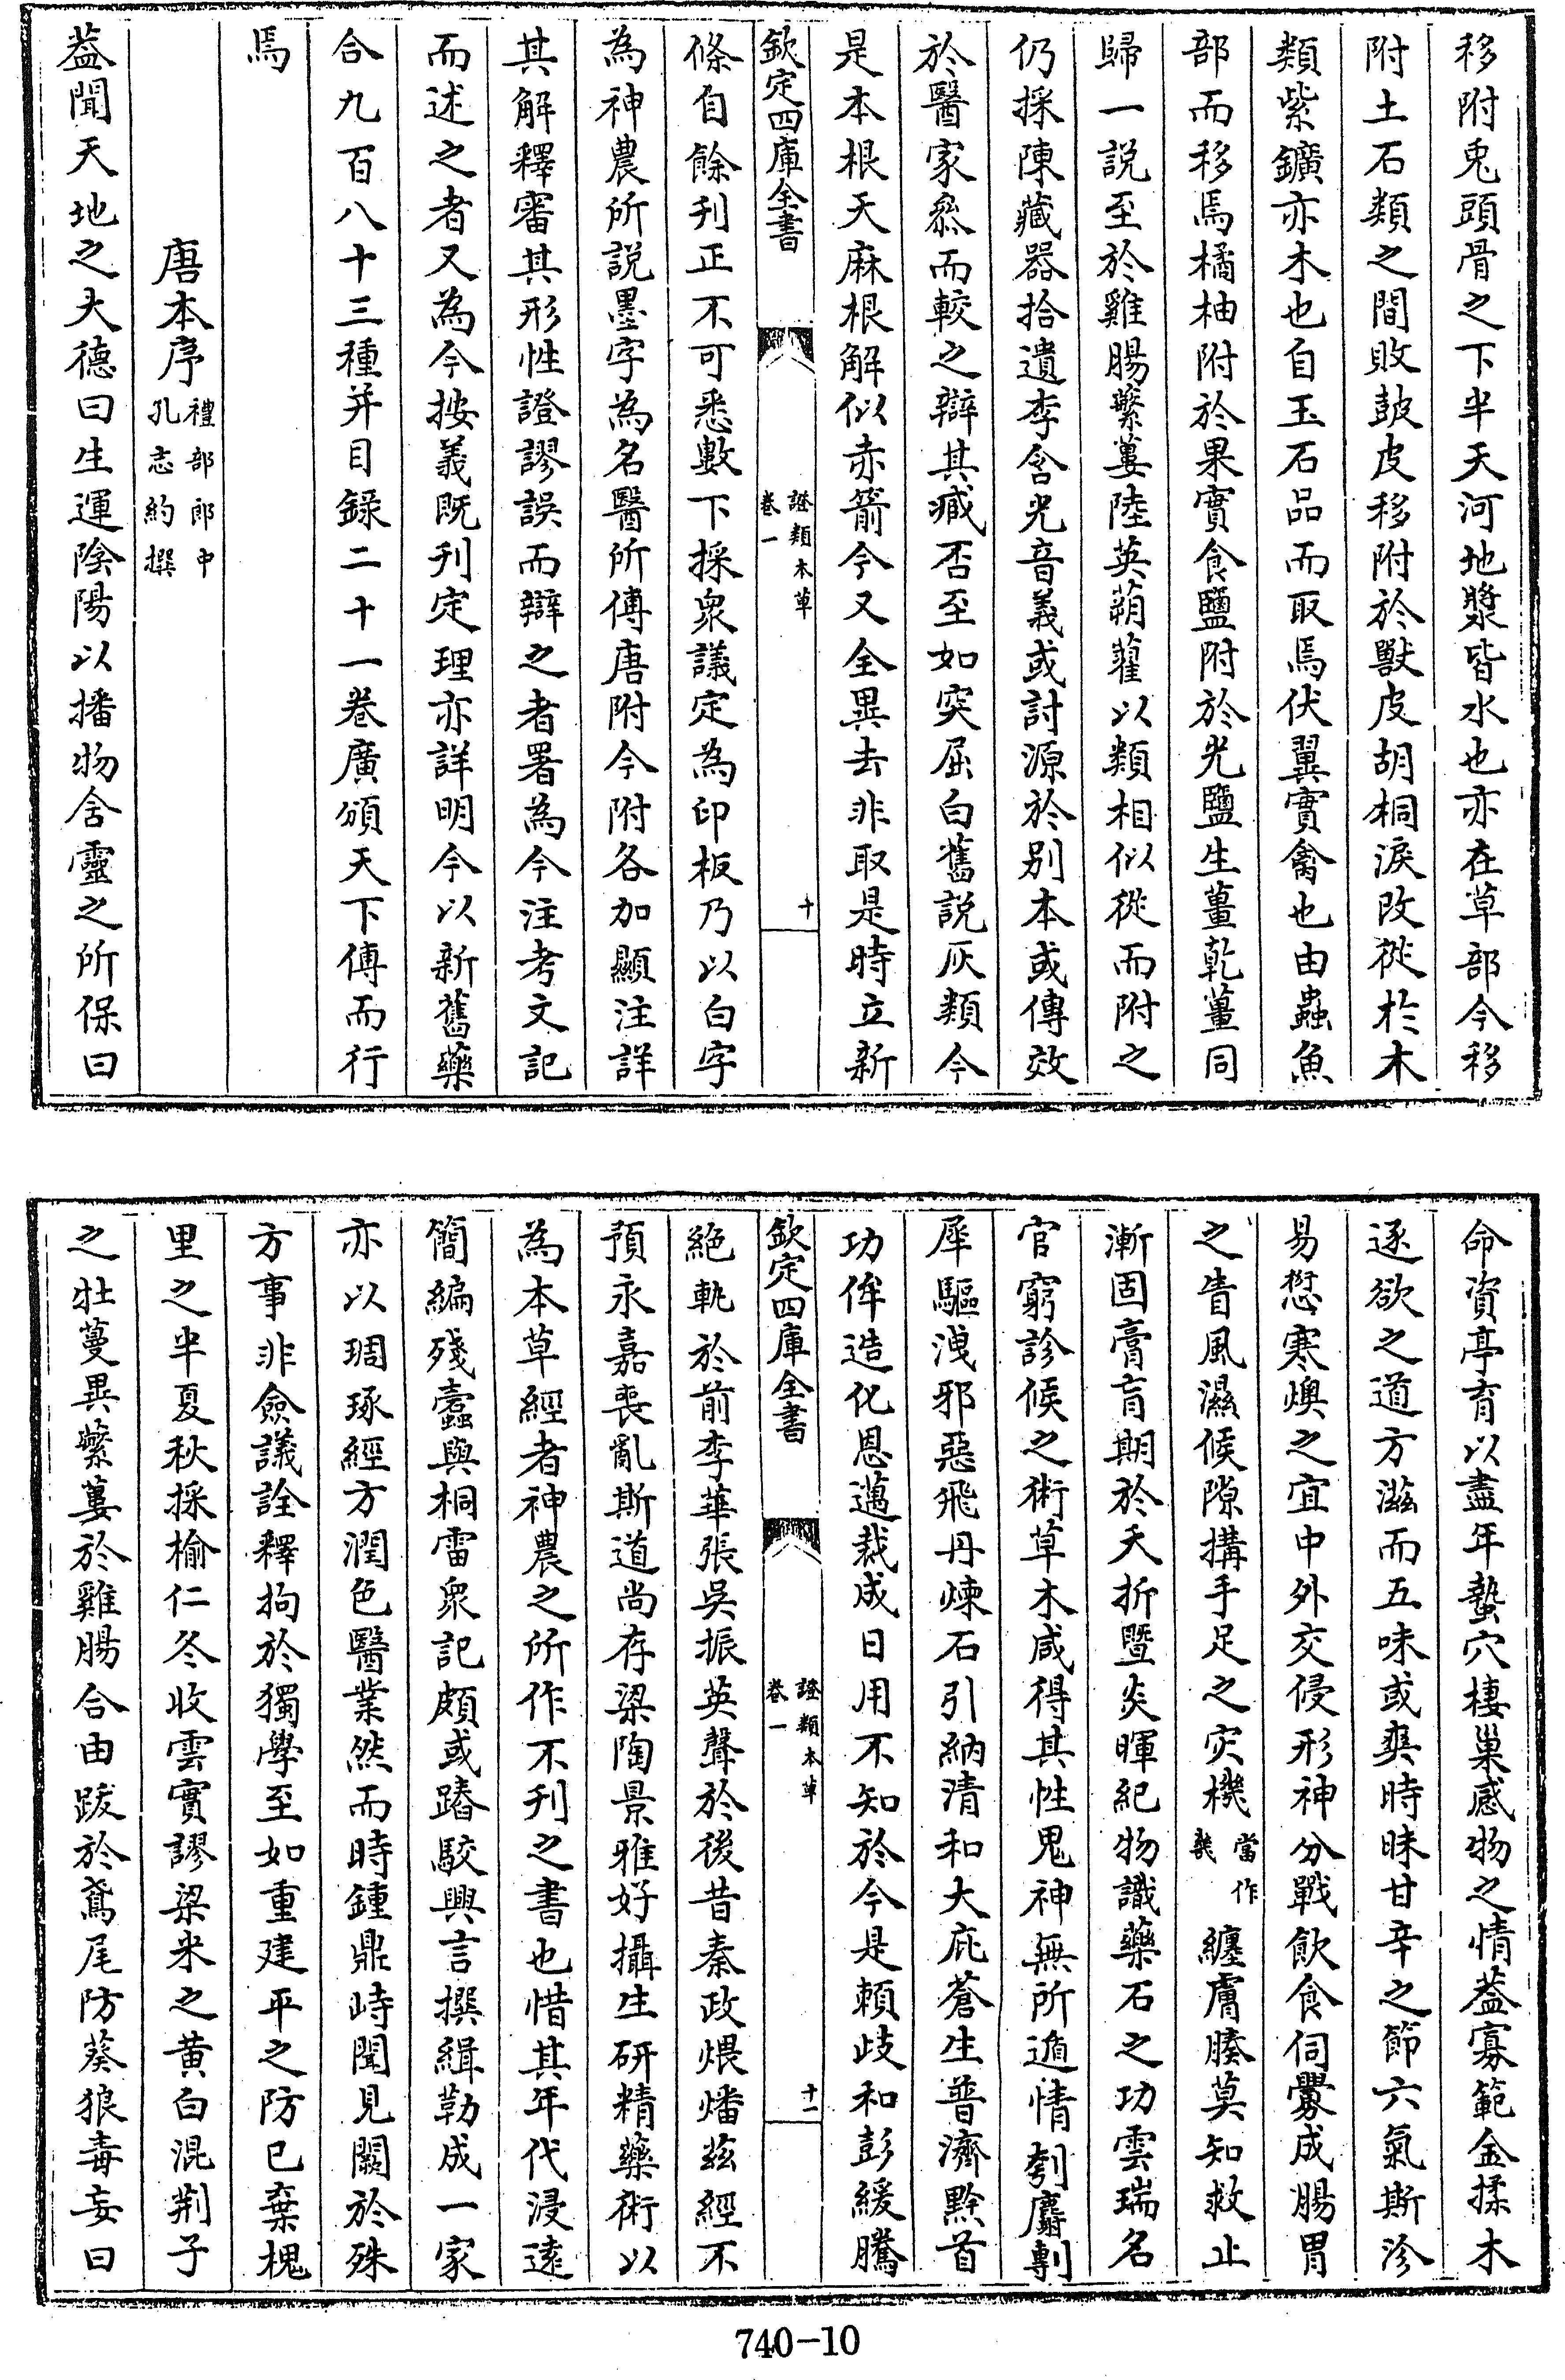 移附兎頭骨之下半天河地漿皆水也亦在草部今移
附土石類之間敗鼓皮移附於獸皮胡桐淚改從於木
類紫鑛亦木也自玉石品而取焉伏翼實禽也由蟲魚
部而移焉橘柚附於果實食鹽附於光鹽生薑乾薑同
歸一説至於雞腸蘩蔞陸英蒴藋以類相似從而附之
仍採陳藏器拾遺李含光音義或討源於别本或傳效
於醫家叅而較之辯其臧否至如突屈白舊説灰類今
是木根天麻根解似赤箭今又全異去非取是時立新
欽定四庫全書
證類本草
卷一
十
條自餘刋正不可悉數下採衆議定為印板乃以白字
為神農所説墨字為名醫所傳唐附今附各加顯注詳
其解釋審其形性證謬誤而辯之者署為今注考文記
而述之者又為今按義既刋定理亦詳明今以新舊藥
合九百八十三種并目錄二十一卷廣頒天下傳而行
焉
唐本序 禮部郎中
孔志約撰
葢聞天地之大德曰生運陰陽以播物含靈之所保曰
命資亭育以盡年蟄穴棲巢感物之情葢寡範金揉木
逐欲之道方滋而五味或爽時昧甘辛之節六氣斯沴
易愆寒燠之宜中外交侵形神分戰飲食伺釁成腸胃
之眚風濕候隙搆手足之灾機 當作
幾 纏膚腠莫知救止
漸固膏肓期於夭折暨炎暉紀物識藥石之功雲瑞名
官窮診候之術草木咸得其性鬼神無所遁情刳麝剸
犀驅洩邪惡飛丹煉石引納清和大庇蒼生普濟黔首
功侔造化恩邁裁成日用不知於今是頼岐和彭緩騰
欽定四庫全書
證類本草
卷一
十一
絶軌於前李華張吳振英聲於後昔秦政煨燔兹經不
預永嘉喪亂斯道尚存梁陶景雅好攝生研精藥術以
為本草經者神農之所作不刋之書也惜其年代浸遠
簡編殘蠧與桐雷衆記頗或踳駮興言撰緝勒成一家
亦以琱琢經方潤色醫業然而時鍾鼎峙聞見闕於殊
方事非僉議詮釋拘於獨學至如重建平之防已棄槐
里之半夏秋採榆仁冬收雲實謬梁米之黄白混荆子
之牡蔓異蘩蔞於雞腸合由跋於鳶尾防葵狼毒妄曰
740-10